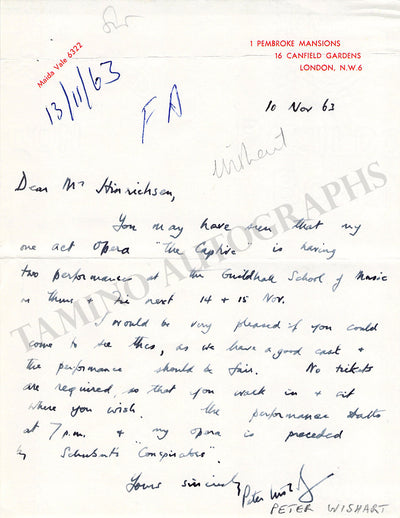 Maida Vale 6322
1 PEMBROKE MANSIONS
16 CANFIELD GARDENS
LONDON, N.W.6
13/11/63
FA
10 Nov 63
Wishart
Dear Mr Hinrichsen,
You may have seen that my
one act opera "The Captive" is having
two performances at the Guildhall School of Music
on Thurs & Fri next 14 & 15 Nov.
I would be very pleased if you could
come to see this, as we have a good cast &
the performance should be fair. No tickets
are required, so that you walk in & sit
where you wish. The performance starts
at 7 p.m. & my opera is preceded
by Schubert's "Conspirators".
Yours sincerely
Peter Wishart
PETER WISHART
TAMINO AUTOGRAPHS